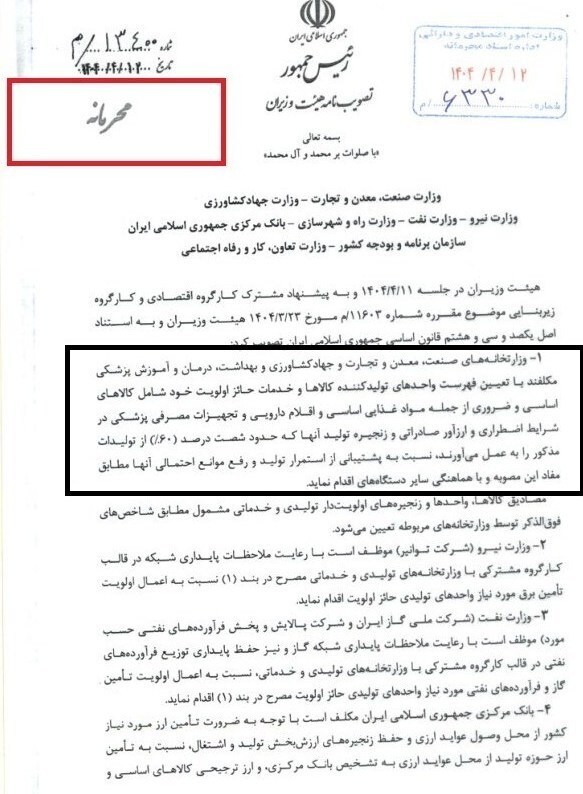 جمهوری اسلامی ایران
رئیس جمهور
تصویب‌نامه هیئت وزیران
شماره ۱۳۴۰۰/م
تاریخ ۱۴۰۴/۰۴/۱۲
محرمانه
وزارت امور اقتصادی و دارائی
اداره اسناد محرمانه
۱۴۰۴/۴/۱۲
شماره: ۶۳۳۰/م
بسمه تعالی
«با صلوات بر محمد و آل محمد»
وزارت صنعت، معدن و تجارت – وزارت جهادکشاورزی
وزارت نیرو – وزارت نفت – وزارت راه و شهرسازی – بانک مرکزی جمهوری اسلامی ایران
سازمان برنامه و بودجه کشور – وزارت تعاون، کار و رفاه اجتماعی
هیئت وزیران در جلسه ۱۴۰۴/۴/۱۱ و به پیشنهاد مشترک کارگروه اقتصادی و کارگروه
زیربنایی موضوع مقرره شماره ۱۱۶۰۳/م مورخ ۱۴۰۴/۳/۲۳ هیئت وزیران و به استناد
اصل یکصد و سی و هشتم قانون اساسی جمهوری اسلامی ایران تصویب کرد:
۱- وزارتخانه‌های صنعت، معدن و تجارت و جهادکشاورزی و بهداشت، درمان و آموزش پزشکی
مکلفند با تعیین فهرست واحدهای تولیدکننده کالاها و خدمات حائز اولویت خود شامل کالاهای
اساسی و ضروری از جمله مواد غذایی اساسی و اقلام دارویی و تجهیزات مصرفی پزشکی در
شرایط اضطراری و ارزآور صادراتی و زنجیره تولید آنها که حدود شصت درصد (۶۰٪) از تولیدات
مذکور را به عمل می‌آورند، نسبت به پشتیبانی از استمرار تولید و رفع موانع احتمالی آنها مطابق
مفاد این مصوبه و با هماهنگی سایر دستگاه‌های اقدام نماید.
مصادیق کالاها، واحدها و زنجیره‌های اولویت‌دار تولیدی و خدماتی مشمول مطابق شاخص‌های
فوق‌الذکر توسط وزارتخانه‌های مربوطه تعیین می‌شود.
۲- وزارت نیرو (شرکت توانیر) موظف است با رعایت ملاحظات پایداری شبکه در قالب
کارگروه مشترکی با وزارتخانه‌های تولیدی و خدماتی مصرح در بند (۱) نسبت به اعمال اولویت
تأمین برق مورد نیاز واحدهای تولیدی حائز اولویت اقدام نماید.
۳- وزارت نفت (شرکت ملی گاز ایران و شرکت پالایش و پخش فرآورده‌های نفتی حسب
مورد) موظف است با رعایت ملاحظات پایداری شبکه گاز و نیز حفظ پایداری توزیع فرآورده‌های
نفتی در قالب کارگروه مشترکی با وزارتخانه‌های تولیدی و خدماتی، نسبت به اعمال اولویت تأمین
گاز و فرآورده‌های نفتی مورد نیاز واحدهای تولیدی حائز اولویت مصرح در بند (۱) اقدام نماید.
۴- بانک مرکزی جمهوری اسلامی ایران مکلف است با توجه به ضرورت تأمین ارز مورد نیاز
کشور از محل وصول عواید ارزی و حفظ زنجیره‌های ارزش‌بخش تولید و اشتغال، نسبت به تأمین
ارز حوزه تولید از محل عواید ارزی به تشخیص بانک مرکزی، و ارز ترجیحی کالاهای اساسی و